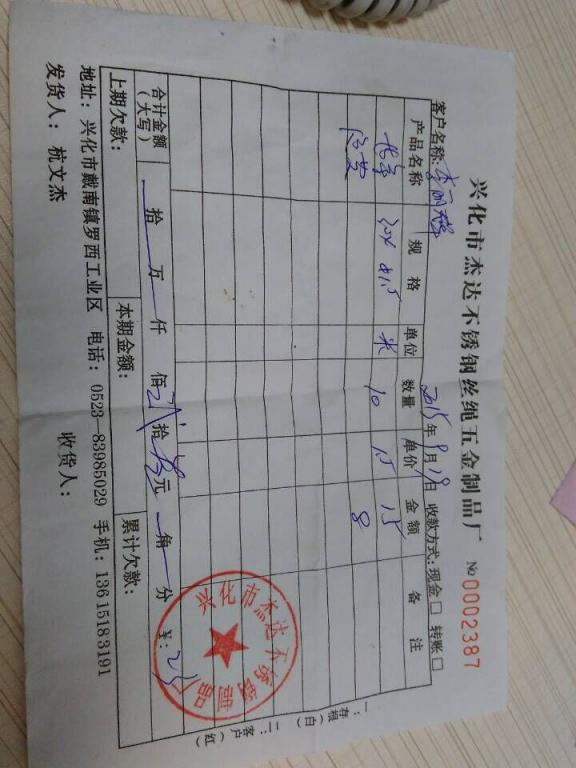 兴化市杰达不锈钢丝绳五金制品厂
№ 0002387
客户名称: 2015年9月19日 收款方式: 现金□ 转账□
产品名称 规格 单位 数量 单价 金额 备注
米 10 1.5 15
8
合计金额(大写) 拾 万 仟 佰 贰拾 元 角 分 ¥: 23
上期欠款: 本期金额: 累计欠款:
地址: 兴化市戴南镇罗西工业区 电话: 0523-83985029 手机: 13615183191
发货人: 杭文杰 收货人:
一:存根(白) 二:客户(红)
兴化市杰达不锈